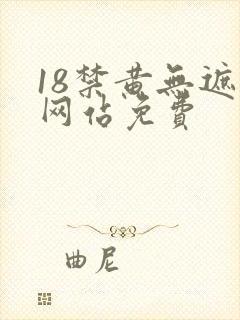 18禁黄無遮
网佔免費
曲尼